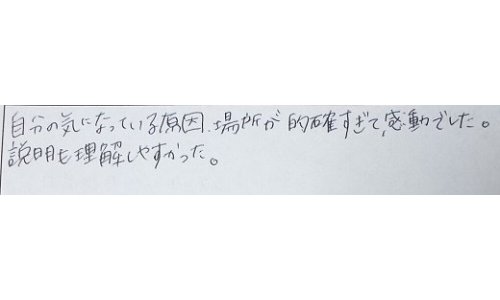 自分の気になっている原因、場所が的確すぎて、感動でした。
説明も理解しやすかった。